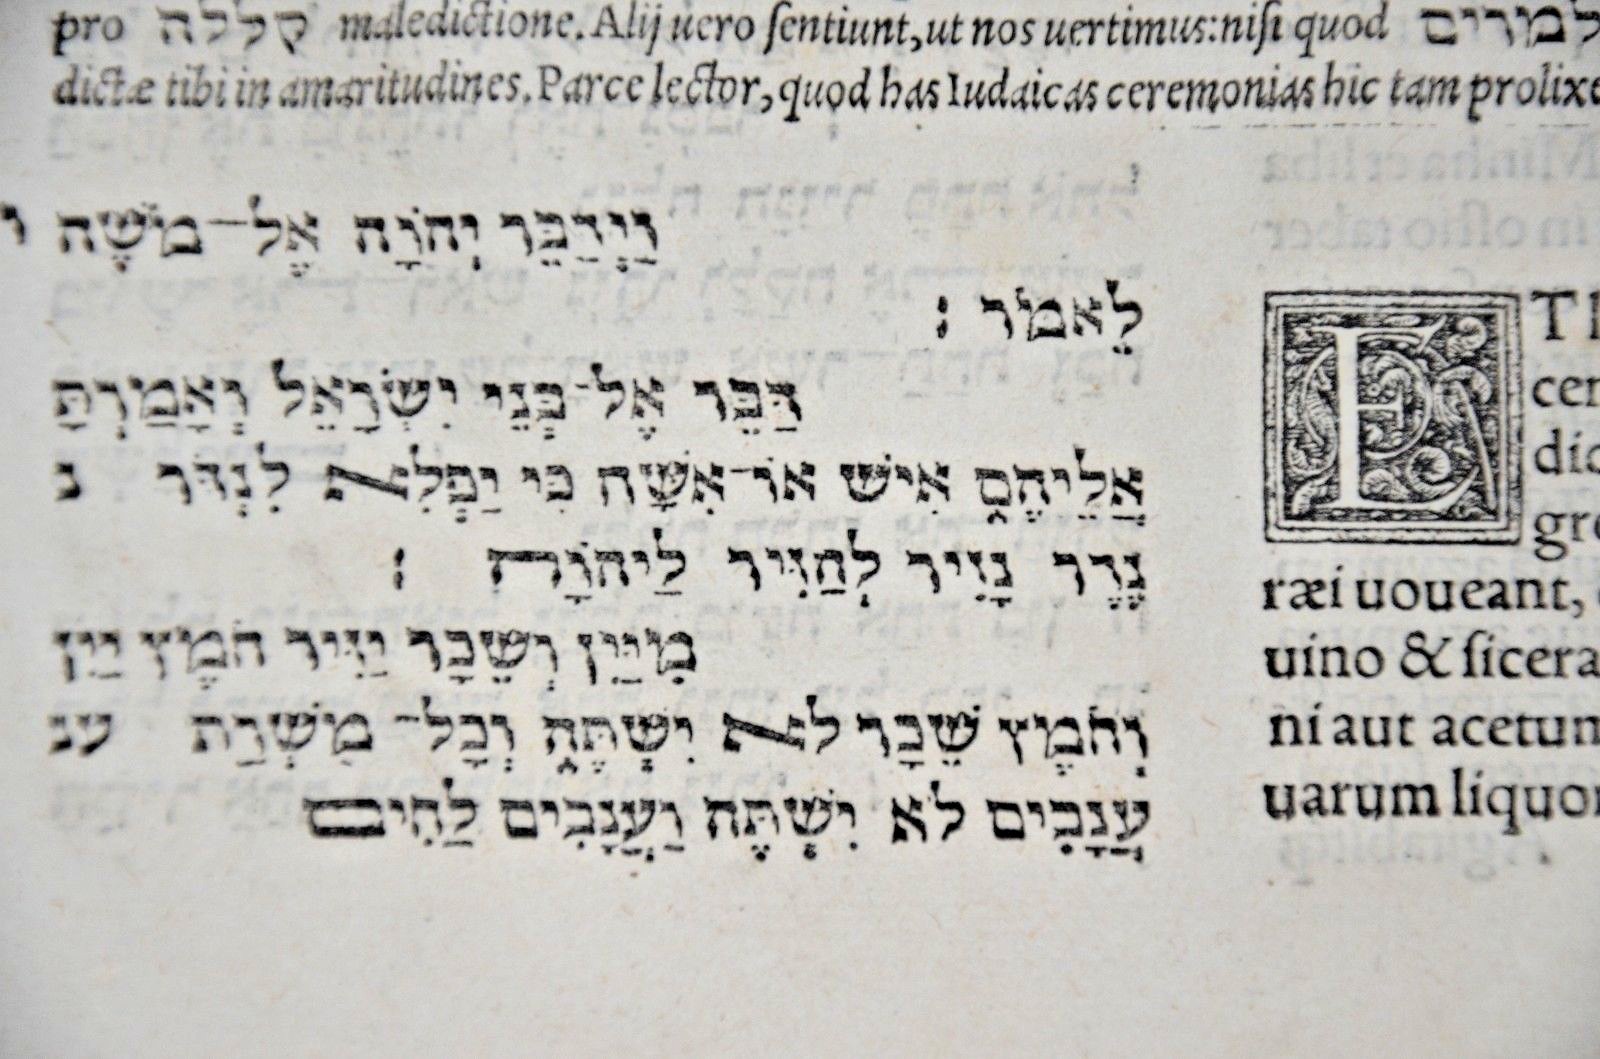 pro קללה maledictione. Alij uero ſentiunt, ut nos uertimus: niſi quod למרים
dictæ tibi in amaritudines. Parce lector, quod has Iudaicas ceremonias hic tam prolixe
וַיְדַבֵּר יְהוָֹה אֶל־מֹשֶׁה ו
לֵאמֹר :
דַּבֵּר אֶל־בְּנֵי יִשְׂרָאֵל וְאָמַרְתָּ
אֲלֵיהֶם אִישׁ אוֹ־אִשָּׁה כִּי יַפְלִא לִנְדֹּר נ
נֶדֶר נָזִיר לְהַזִּיר לַיהוָֹה :
מִיַּיִן וְשֵׁכָר יַזִּיר חֹמֶץ יַיִן
וְחֹמֶץ שֵׁכָר לֹא יִשְׁתֶּה וְכָל־ מִשְׁרַת ענ
עֲנָבִים לֹא יִשְׁתֶּה וַעֲנָבִים לַחִים
ET
cer
dic
gre
ræi uoueant,
uino & ſicera
ni aut acetum
uarum liquor